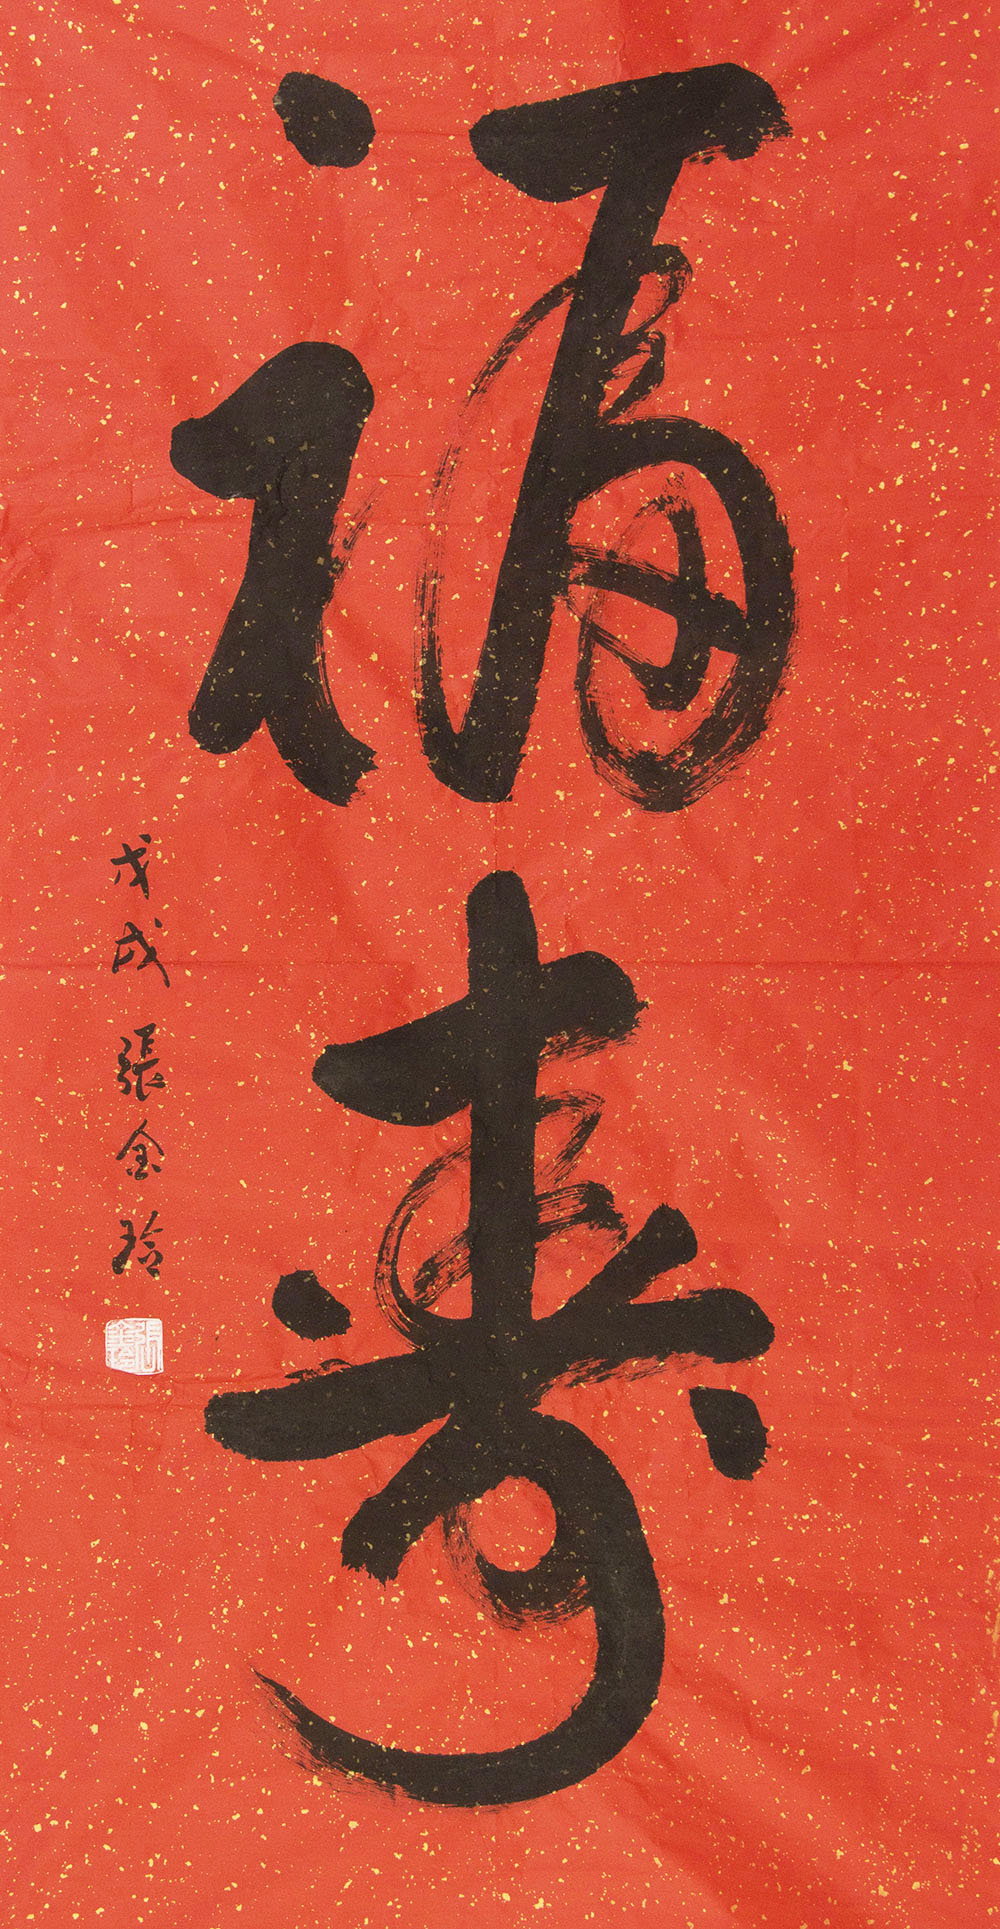 福壽
戊戌 張金玲